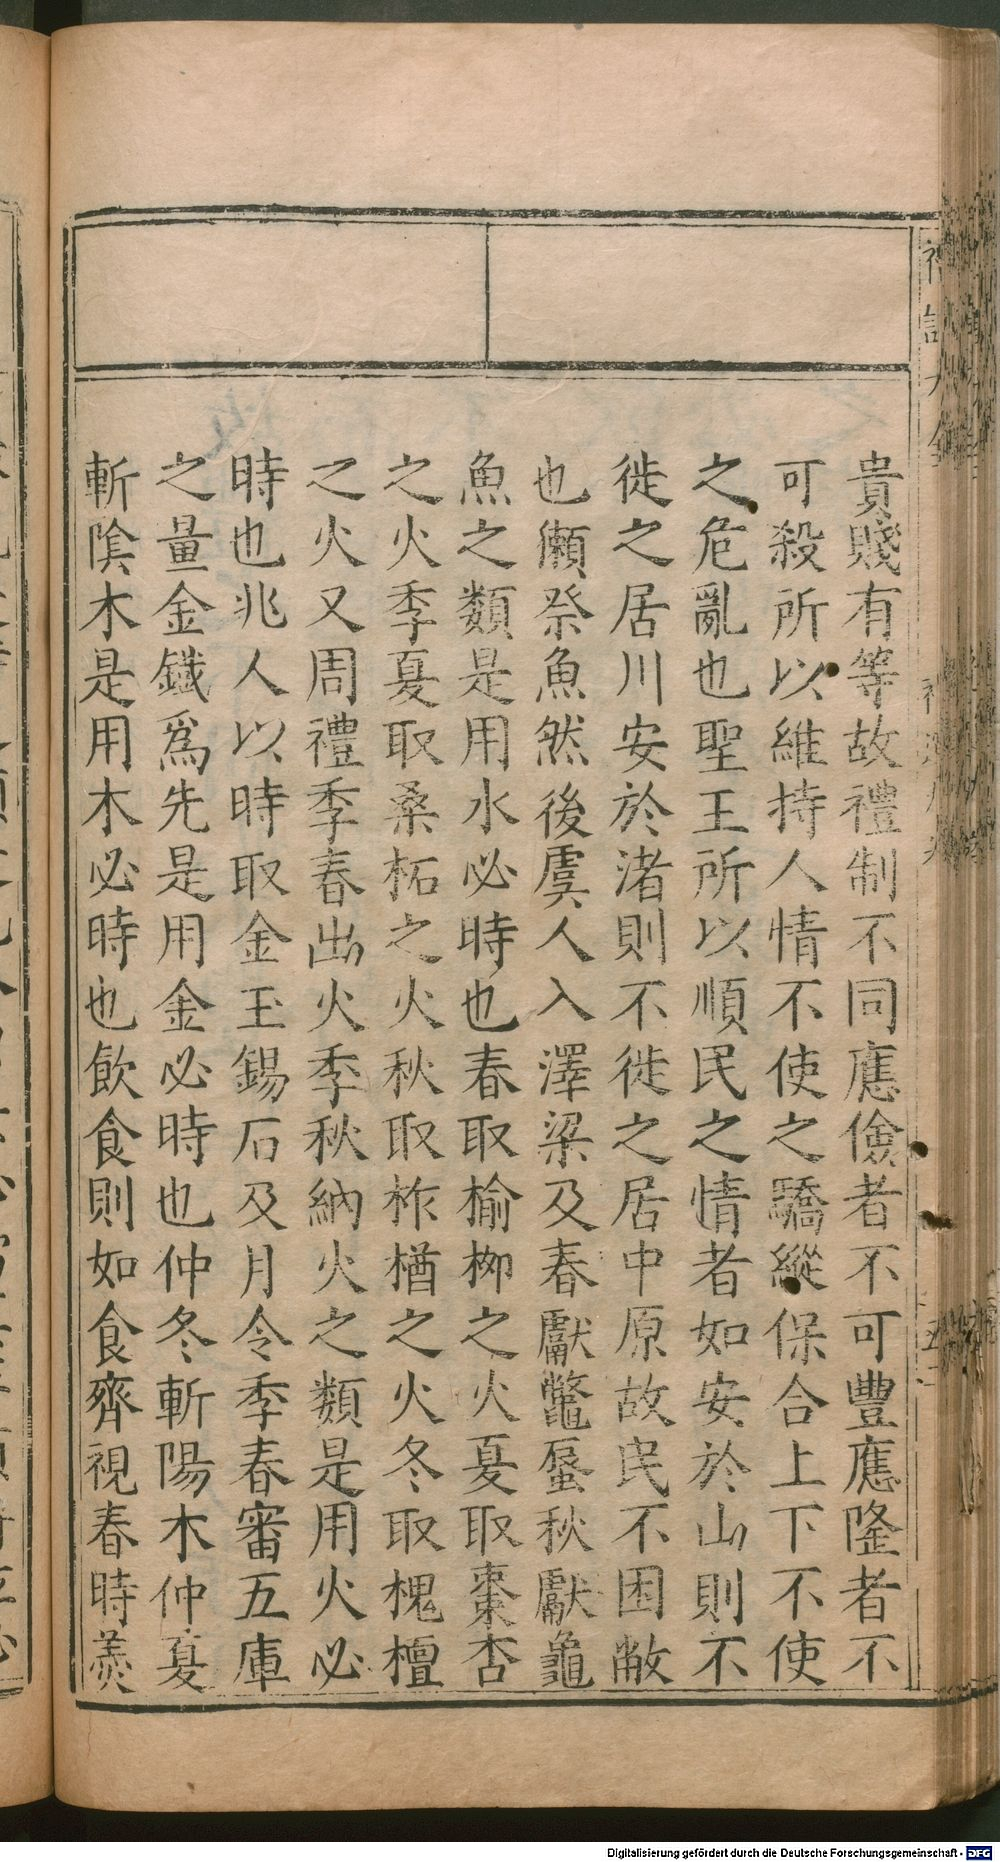 貴賤有等故禮制不同應儉者不可豐應隆者不
可殺所以維持人情不使之驕縱保合上下不使
之危亂也聖王所以順民之情者如安於山則不
徙之居川安於渚則不徙之居中原故民不困敝
也獺祭魚然後虞人入澤梁及春獻鼈蜃秋獻龜
魚之類是用水必時也春取榆柳之火夏取棗杏
之火季夏取桑柘之火秋取柞楢之火冬取槐檀
之火又周禮季春出火季秋納火之類是用火必
時也兆人以時取金玉錫石及月令季春審五庫
之量金鐵爲先是用金必時也仲冬斬陽木仲夏
斬陰木是用木必時也飲食則如食齊視春時羹
Digitalisierung gefördert durch die Deutsche Forschungsgemeinschaft - DFG